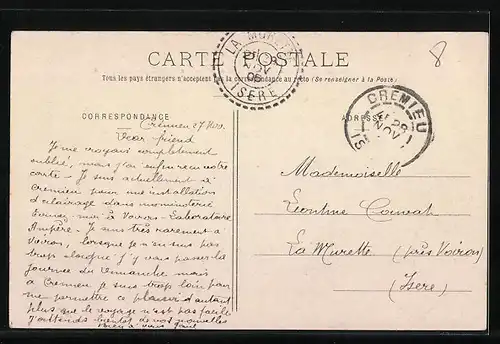 CARTE POSTALE
Tous les pays étrangers n'acceptent pas la correspondance au recto (Se renseigner à la Poste)
LA MURETTE
NOV
05
ISÈRE
8
CORRESPONDANCE
ADRESSE
CREMIEU
28
NOV
Crémieu 27 Nov
Dear friend
Je me croyais complètement
oublié, mais j'ai enfin reçu votre
carte - Je suis actuellement à
Crémieu pour une installation
d'éclairage dans
moi à Voiron - Laboratoire
Ampère - Je suis très rarement à
Voiron, lorsque je n'en suis pas
trop éloigné j'y vais passer la
journée du Dimanche mais
à Crémieu je suis trop loin pour
me permettre ce plaisir d'autant
plus que le voyage n'est pas facile
J'attends bientôt de vos nouvelles
bien à vous
Mademoiselle
Léontine
La Murette (près Voiron)
(Isère)